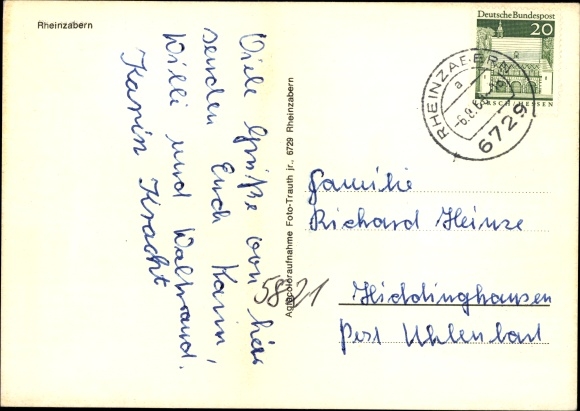 Rheinzabern
Viele Grüße von hier
senden Euch Karin,
Willi und Waltraud.
Karin Kracht
Agfacoloraufnahme Foto-Trauth jr., 6729 Rheinzabern
Deutsche Bundespost
20
LORSCH/HESSEN
RHEINZABERN
a
-6.8.68
6729
Familie
Richard Heinze
5821
Hiddinghausen
Post Uhlenbart